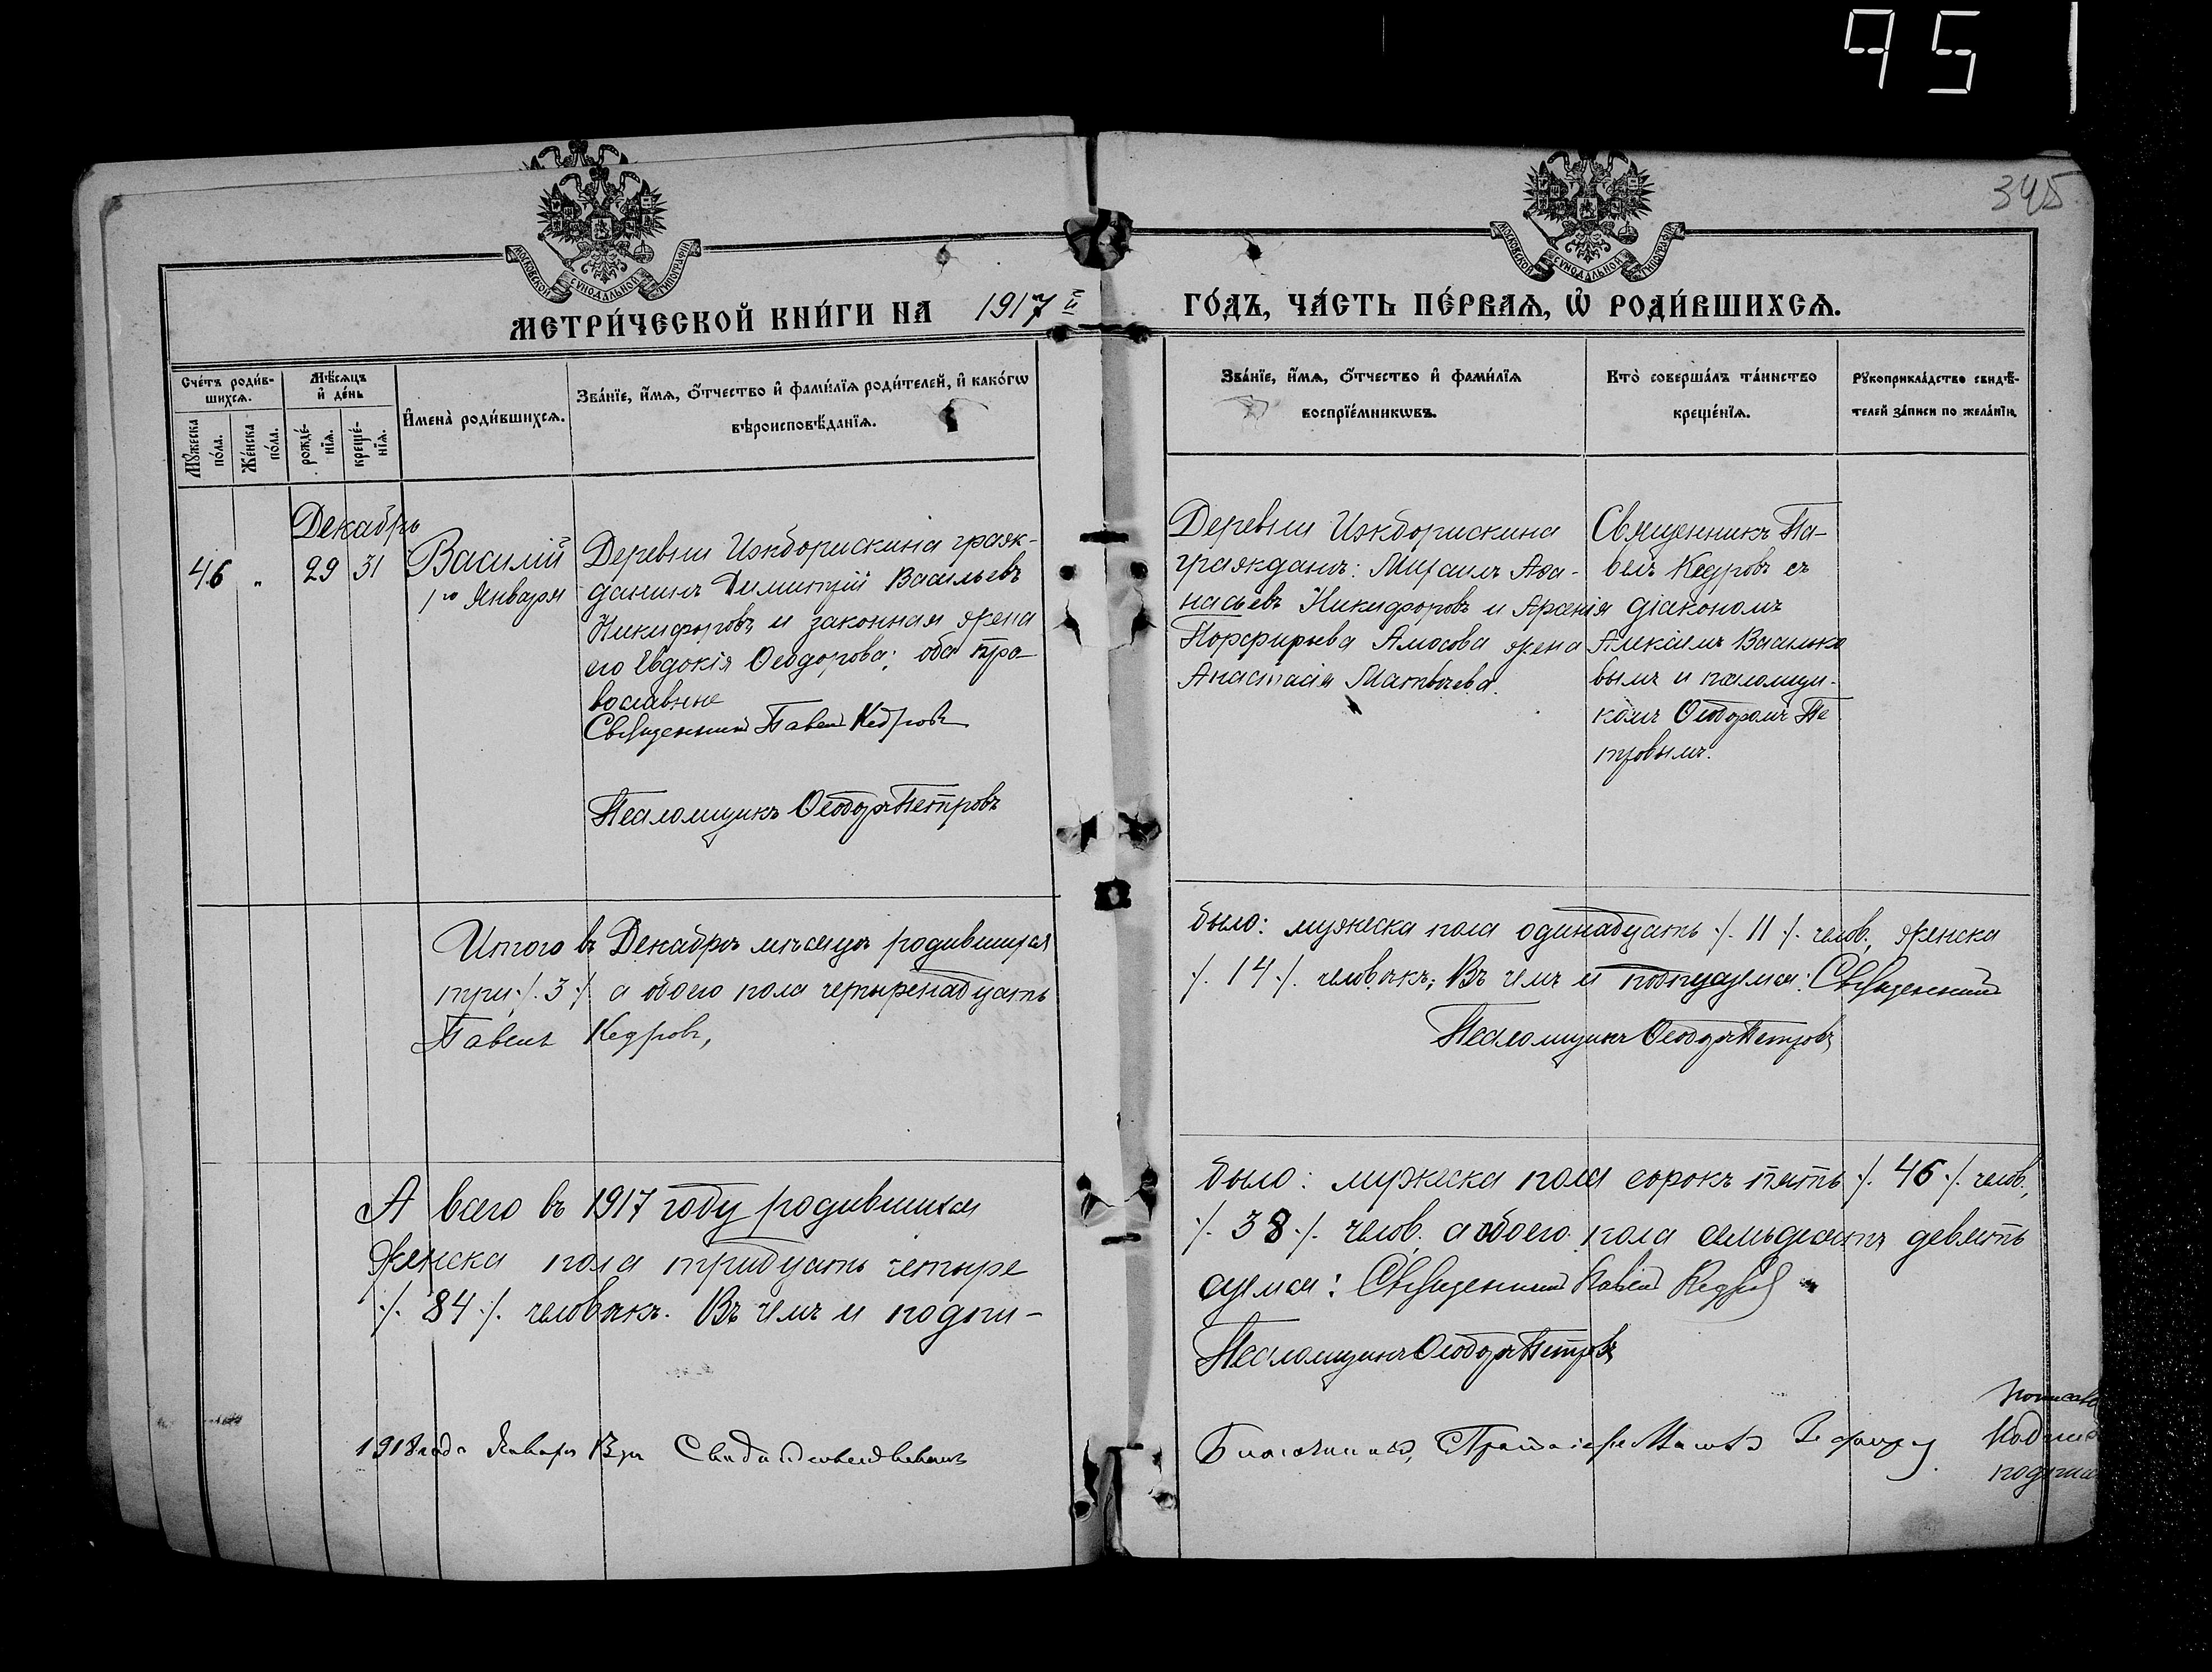 951
345
МОСКОВСКОЙ СѴНОДАЛЬНОЙ ТИПОГРАФІИ
МОСКОВСКОЙ СѴНОДАЛЬНОЙ ТИПОГРАФІИ
МЕТРИ́ЧЕСКОЙ КНИ́ГИ НА 1917 й
ГО́ДЪ, ЧА́СТЬ ПЕ́РВАѦ, Ѡ҆ РОДИ́ВШИХСѦ.
Сче́тъ роди́в-
шихсѧ.
Мꙋ́жеска по́ла.
Же́нска по́ла.
Мѣ́сѧцъ и҆ де́нь
рожде́-
нїѧ.
креще́-
нїѧ.
И҆мена̀ роди́вшихсѧ.
Зва́нїе, и҆́мѧ, о҆́тчество и҆ фами́лїѧ роди́телей, и҆ како́гѡ
вѣроисповѣ́данїѧ.
Зва́нїе, и҆́мѧ, о҆́тчество и҆ фами́лїѧ
воспрїе́мникѡвъ.
Кто̀ соверша́лъ та́инство
креще́нїѧ.
Рꙋкоприкла́дство свидѣ́-
телей за́писи по жела́нїю.
Декабрь
46 " 29 31 Василій
1го Января
Деревни Ижборискина граж-
данинъ Димитрій Васильевъ
Никифоровъ и законная жена
его Евдокія Ѳеодорова; оба пра-
вославные
Священникъ Павелъ Кедровъ
Псаломщикъ Ѳеодоръ Петровъ
Деревни Ижборискина
граждане: Михаилъ Аѳа-
насьевъ Никифоровъ и Арсенія
Порфирьева Амосова жена
Анастасія Матвѣева.
Священникъ Па-
велъ Кедровъ съ
діакономъ
Алексіемъ Василько
вымъ и псаломщи-
комъ Ѳеодоромъ Пе
тровымъ.
Итого въ Декабрѣ мѣсяцѣ родившихся
было: мужеска пола одинадцать ./. 11 ./. челов., женска
три ./. 3 ./. а обоего пола четыренадцать
./. 14 ./. человѣкъ; Въ чемъ и подписуемся: Священникъ
Павелъ Кедровъ,
Псаломщикъ Ѳеодоръ Петровъ
А всего въ 1917 году родившихся
было: мужеска пола сорокъ пять ./. 46 ./. челов.,
женска пола тридцать четыре
./. 38 ./. челов. а обоего пола семьдесятъ девять
./. 84 ./. человѣкъ. Въ чемъ и подпи-
суемся: Священникъ Павелъ Кедровъ
Псаломщикъ Ѳеодоръ Петровъ
1918 года Января